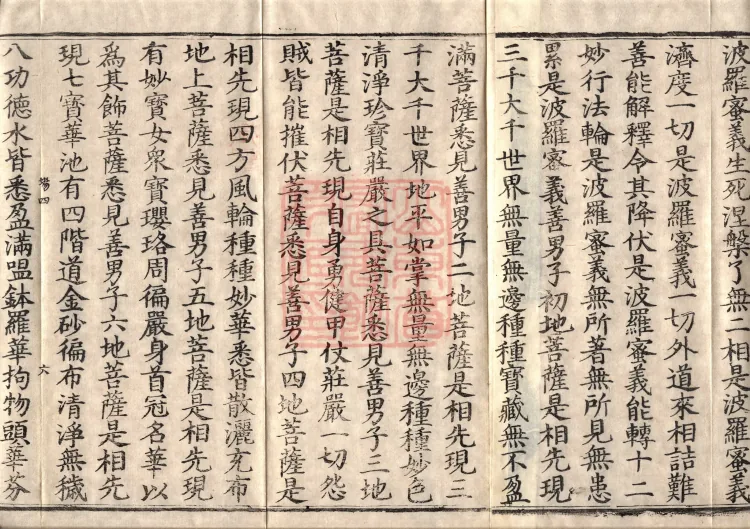 波羅蜜義生死涅槃了無二相是波羅蜜義
濟度一切是波羅蜜義一切外道來相詰難
善能解釋令其降伏是波羅蜜義能轉十二
妙行法輪是波羅蜜義無所著無所見無患
累是波羅蜜義善男子初地菩薩是相先現
三千大千世界無量無邊種種寶藏無不盈
滿菩薩悉見善男子二地菩薩是相先現三
千大千世界地平如掌無量無邊種種妙色
清淨珍寶莊嚴之具菩薩悉見善男子三地
菩薩是相先現自身勇健甲仗莊嚴一切怨
賊皆能摧伏菩薩悉見善男子四地菩薩是
相先現四方風輪種種妙華悉皆散灑充布
地上菩薩悉見善男子五地菩薩是相先現
有妙寶女眾寶瓔珞周徧嚴身首冠名華以
為其飾菩薩悉見善男子六地菩薩是相先
現七寶華池有四階道金砂徧布清淨無穢
四 六
八功德水皆悉盈滿嗢鉢羅華拘物頭華芬